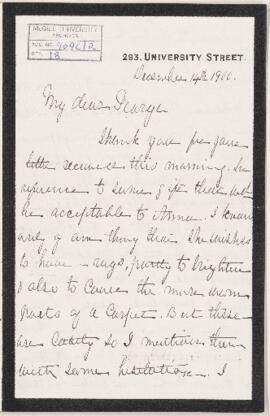 McGILL UNIVERSITY
ARCHIVES
ACC. NO. 909C/2
REF. 18
293, UNIVERSITY STREET.
December 14th 1900.
My dear George
Thank you for your
letter received this morning. In
reference to some gift that will
be acceptable to Anna. I know
only of one thing that she wishes
to have - rugs, partly to brighten
& also to cover the more worn
parts of a carpet. But these
are costly so I mention them
with some hesitation. I